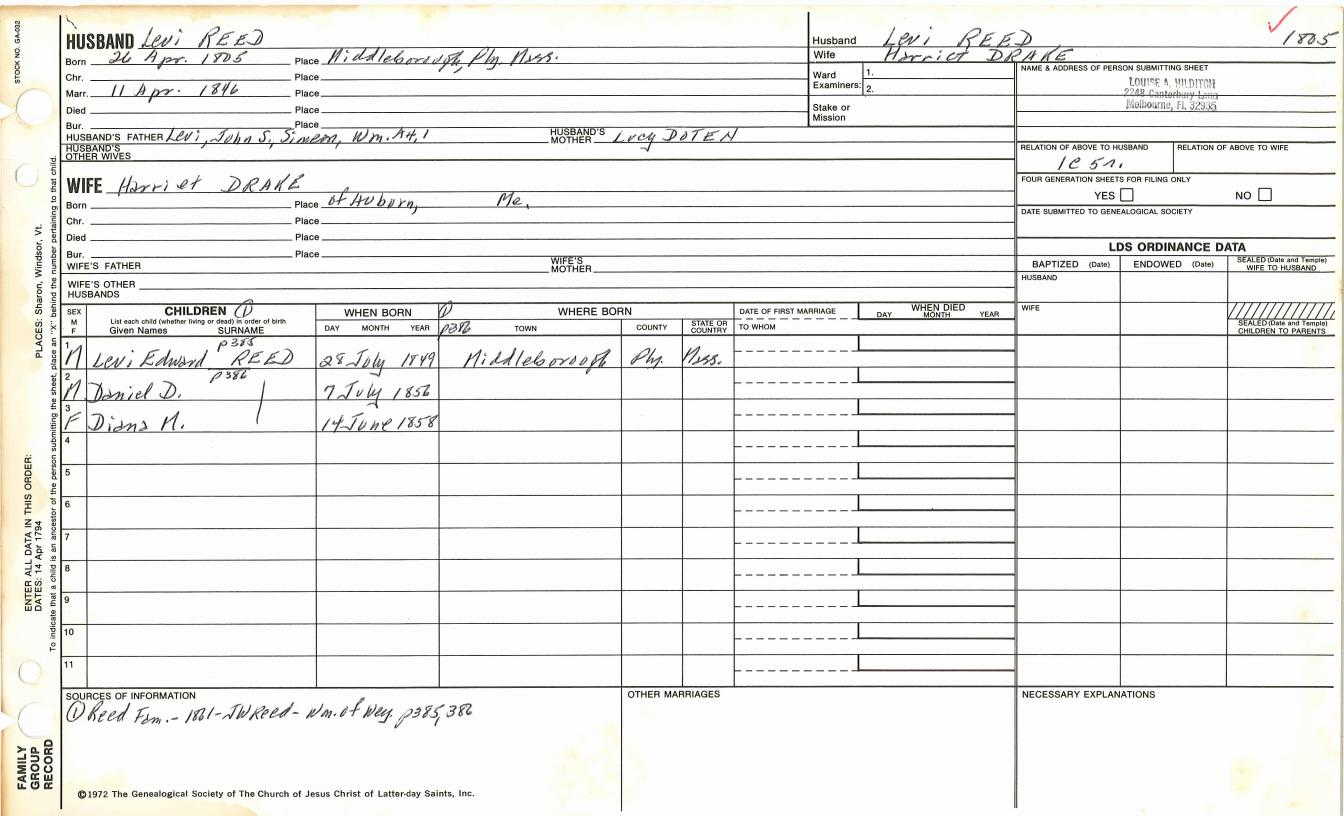 STOCK NO. GA-032
HUSBAND Levi REED
Born 26 Apr. 1805 Place Middleborough, Ply. Mass.
Chr. Place
Marr. 11 Apr. 1846 Place
Died Place
Bur. Place
HUSBAND'S FATHER Levi, John S, Simeon, Wm. A4,1 HUSBAND'S MOTHER Lucy DOTEN
HUSBAND'S OTHER WIVES
WIFE Harriet DRAKE
Born Place of Auburn, Me.
Chr. Place
Died Place
Bur. Place
WIFE'S FATHER WIFE'S MOTHER
WIFE'S OTHER HUSBANDS
Husband Levi REED 1805
Wife Harriet DRAKE
Ward Examiners: 1.
2.
Stake or Mission
NAME & ADDRESS OF PERSON SUBMITTING SHEET
LOUISE A. HILDITCH
2248 Canterbury Lane
Melbourne, Fl. 32935
RELATION OF ABOVE TO HUSBAND RELATION OF ABOVE TO WIFE
1C 5r.
FOUR GENERATION SHEETS FOR FILING ONLY
YES NO
DATE SUBMITTED TO GENEALOGICAL SOCIETY
LDS ORDINANCE DATA
BAPTIZED (Date) ENDOWED (Date) SEALED (Date and Temple) WIFE TO HUSBAND
HUSBAND
WIFE
SEALED (Date and Temple) CHILDREN TO PARENTS
SEX M F
CHILDREN ①
List each child (whether living or dead) in order of birth
Given Names SURNAME
WHEN BORN
DAY MONTH YEAR
① p386
WHERE BORN
TOWN COUNTY STATE OR COUNTRY
DATE OF FIRST MARRIAGE
TO WHOM
WHEN DIED
DAY MONTH YEAR
p385
1 M Levi Edward REED 28 July 1849 Middleborough Ply. Mass.
p386
2 M Daniel D. 7 July 1856
3 F Diana M. 14 June 1858
4
5
6
7
8
9
10
11
SOURCES OF INFORMATION
① Reed Fam.- 1861- JWReed- Wm. of Wey. p385,386
OTHER MARRIAGES
NECESSARY EXPLANATIONS
©1972 The Genealogical Society of The Church of Jesus Christ of Latter-day Saints, Inc.
FAMILY GROUP RECORD
ENTER ALL DATA IN THIS ORDER:
DATES: 14 Apr 1794 PLACES: Sharon, Windsor, Vt.
To indicate that a child is an ancestor of the person submitting the sheet, place an "X" behind the number pertaining to that child.